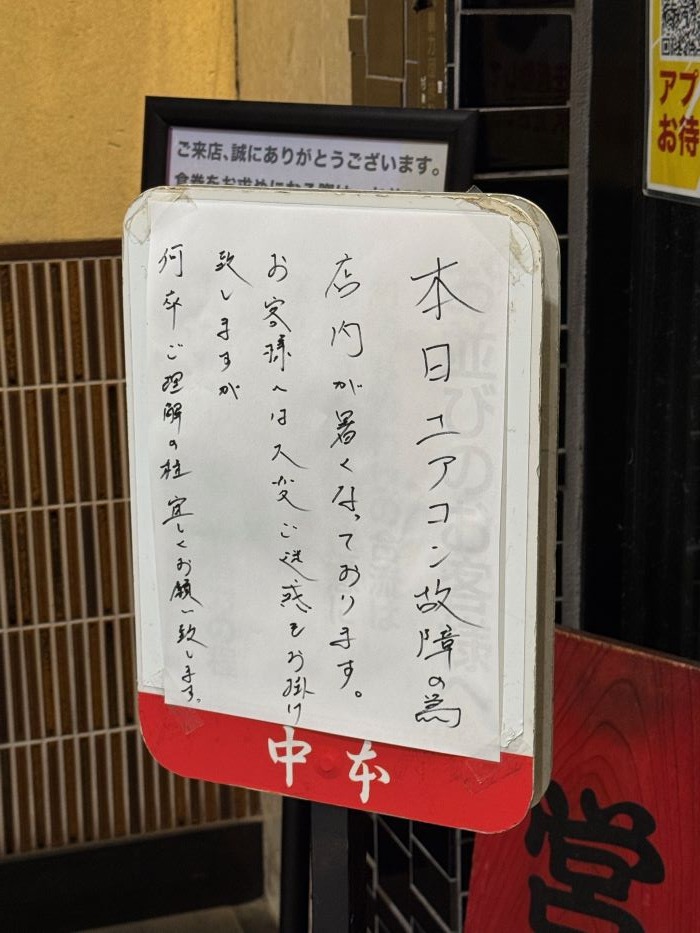 ご来店、誠にありがとうございます。
本日エアコン故障の為
店内が暑くなっております。
お客様へは大変ご迷惑をお掛け
致しますが
何卒ご理解の程宜しくお願い致します。
中本
アプ
お待
営